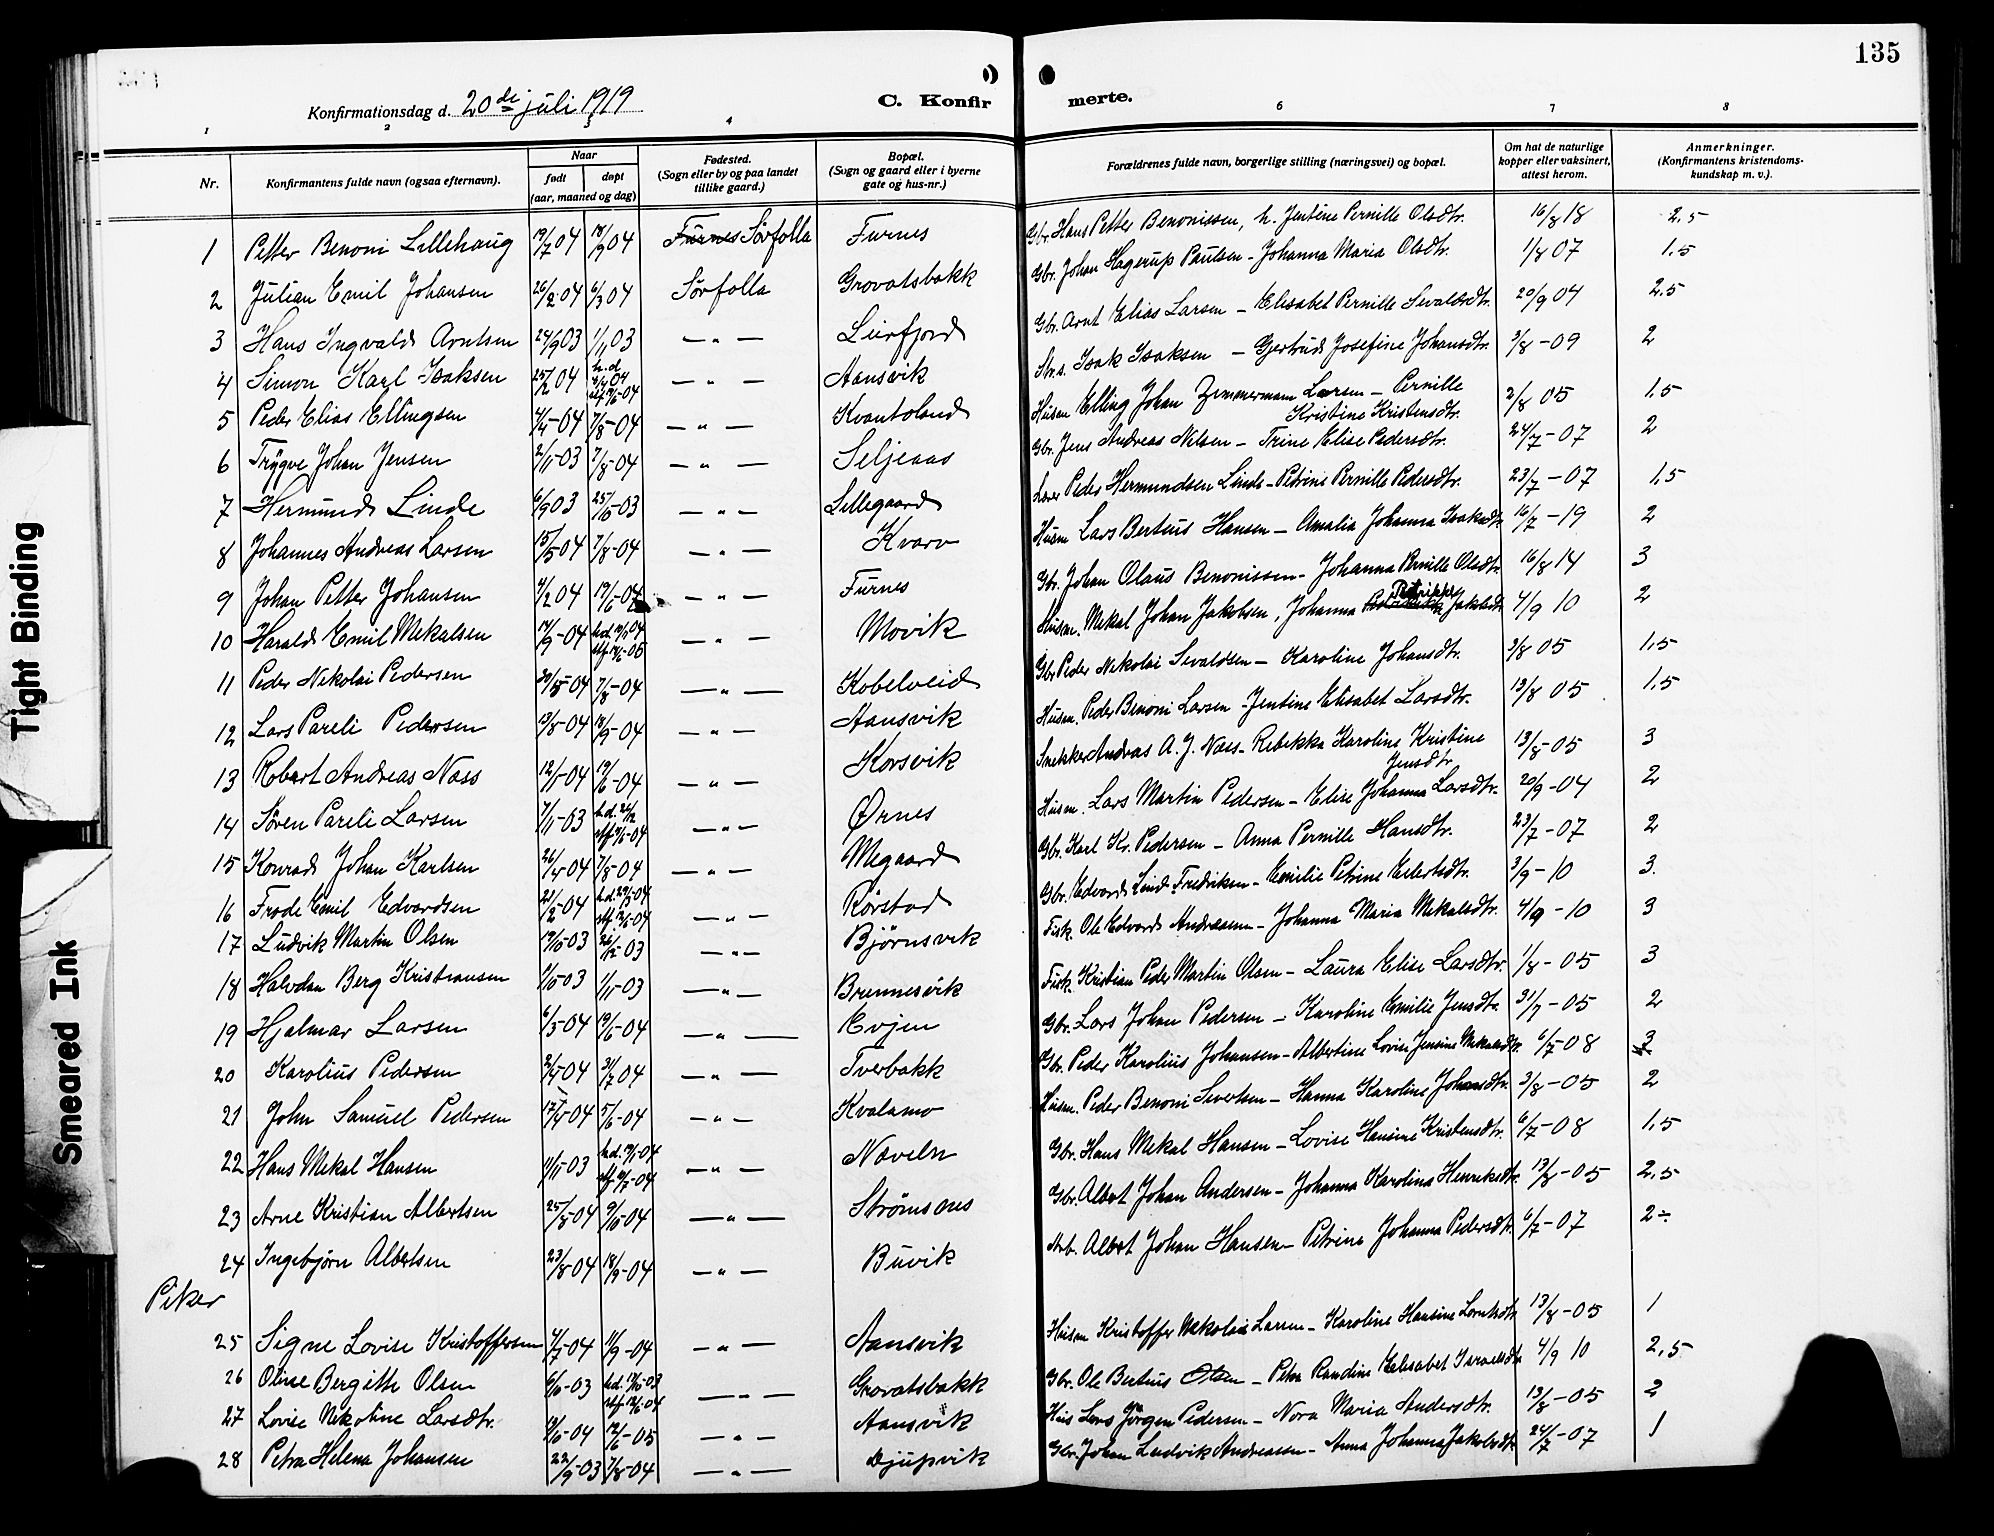 135
Konfirmationsdag d. 20de juli 1919
C. Konfirmerte.
1 2 3 4 6 7 8
Nr. Konfirmantens fulde navn (ogsaa efternavn). Naar født døpt (aar, maaned og dag) Fødested. (Sogn eller by og paa landet tillike gaard.) Bopæl. (Sogn og gaard eller i byerne gate og hus-nr.) Forældrenes fulde navn, borgerlige stilling (næringsvei) og bopæl. Om hat de naturlige kopper eller vaksinert, attest herom. Anmerkninger. (Konfirmantens kristendoms-kundskap m. v.).
1 Petter Benoni Lillehaug 19/7 04 18/9 04 Furnes Sörfolla Furnes Gbr. Hans Petter Benonissen, h. Jentine Pernille Olsdtr. 16/8 18 2.5
2 Julian Emil Johansen 26/2 04 6/3 04 Sörfolla Grovatsbakk Gbr. Johan Hagerup Paulsen - Johanna Maria Olsdtr. 1/8 07 1.5
3 Hans Ingvald Arntsen 24/9 03 1/11 03 - " - Leirfjord Gbr. Arnt Elias Larsen - Elisabet Pernille Sevaldsdtr. 20/9 04 2.5
4 Simon Karl Isaksen 25/2 04 h.d. - " - Aansvik Str.s. Isak Isaksen - Gjertrud Josefine Johansdtr. 3/8 - 09 2
5 Peder Elias Ellingsen 7/8-04 - " - Kvantoland Husm Elling Johan Zimmermann Larsen - Pernille Kristine Kristensdtr. 2/8 05 1.5
6 Trygve Johan Jensen 2/11-03 7/8-04 - " - Seljeaas Gbr. Jens Andreas Nilsen - Trine Elise Pedersdtr. 24/7-07 2
7 Hermund Linde 6/9 03 25/10-03 - " - Lillegaard Lærer Peder Hermundsen Linde - Petrine Pernille Pedersdtr. 23/7-07 1,5
8 Johannes Andreas Larsen 15/5 04 7/8-04 - " - Kvarv Husm Lars Bertius Hansen - Amalia Johanna Isaksdtr. 16/7-19 2
9 Johan Petter Johansen 4/2 04 19/6-04 - " - Furnes Gbr. Johan Olaus Benonissen - Johanna Pernille Olsdtr. 16/8 14 3
10 Harald Emil Mekalsen 14/9-04 - " - Movik Husm. Mekal Johan Jakobsen, Johanna Petrikke Jakobsdtr. 4/9 10 2
11 Peder Nikolai Pedersen 20/5-04 7/8-04 - " - Kobelveid Gbr Peder Nikolai Sevaldsen - Karoline Johansdtr. 3/8 05 1,5
12 Lars Pareli Pedersen 13/8-04 18/9-04 - " - Aansvik Husm. Peder Benoni Larsen - Jentine Elisabet Larsdtr. 13/8 05 1,5
13 Robert Andreas Næss 12/1-04 19/6-04 - " - Korsvik Snekker Andreas A. J. Næss - Rebekka Karoline Kristine Jensdtr 13/8-05 3
14 Sören Pareli Larsen 7/11-03 - " - Ørnes Husm. Lars Martin Pedersen - Elise Johanna Larsdtr. 20/9-04 2
15 Konrad Johan Karlsen 26/4-04 7/8-04 - " - Megaard Gbr. Karl Kr. Pedersen - Anna Pernille Hansdtr. 23/7-07 2
16 Frode Emil Edvardsen 21/2-04 - " - Rörstad Gbr. Edvard Lind Fredriksen - Emilie Petrine Eilertsdtr. 3/9-10 3.
17 Ludvik Martin Olsen 19/10-03 26/12-03 - " - Björnsvik Fisk. Ole Edvard Andreasen - Johanna Maria Mekalsdtr. 4/9-10 3
18 Halvdan Berg Kristiansen 1/11-03 - " - Brennesvik Fisk. Kristian Peder Martin Olsen - Laura Elise Larsdtr. 1/8-05 3
19 Hjalmar Larsen 6/3-04 19/6-04 - " - Evjen Gbr. Lars Johan Pedersen - Karoline Emilie Jensdtr. 31/7-05 2
20 Karolius Pedersen 31/7 04 - " - Tverbakk Gbr. Peder Karolius Johansen - Albertine Lovise Jensine Mekalsdtr. 6/7-08 3
21 John Samuel Pedersen 17/4-04 5/6-04 - " - Kvalamo Husm. Peder Benoni Sivertsen - Hanna Karoline Johansdtr. 3/8-05 2
22 Hans Mekal Hansen 11/11-03 - " - Naveln Gbr. Hans Mekal Hansen - Lovise Hansine Kristensdtr. 6/7-08 1,5
23 Arne Kristian Albertsen 25/8-04 9/10-04 - " - Strömsnes Gbr. Albert Johan Andersen - Johanna Karolina Henriksdtr. 13/8-05 2,5
24 Ingebjörn Albertsen 23/8-04 18/9-04 - " - Buvik Arb. Albert Johan Hansen - Petrine Johanna Pedersdtr. 6/7-07 2÷
Piker
25 Signe Lovise Kristoffersen 4/7-04 11/9-04 - " - Aansvik Husm Kristoffer Nikolai Larsen - Karoline Hansine Lorntsdtr 13/8-05 1
26 Oline Bergitte Olsen 6/6-03 - " - Grovatsbakk Gbr. Ole Bertius Olsen - Petra Randine Elisabet Israelsdtr 4/9 10 2,5
27 Lovise Nikoline Larsdtr. 12/6-05 - " - Aansvik Hus Lars Jörgen Pedersen - Nora Maria Andersdtr. 13/8-05 2
28 Petra Helena Johansen 22/9-03 7/8-04 - " - Djupvik Gbr. Johan Ludvik Andreassen - Anna Johanna Jakobsdtr. 24/7-07 1
Tight Binding
Smeared Ink